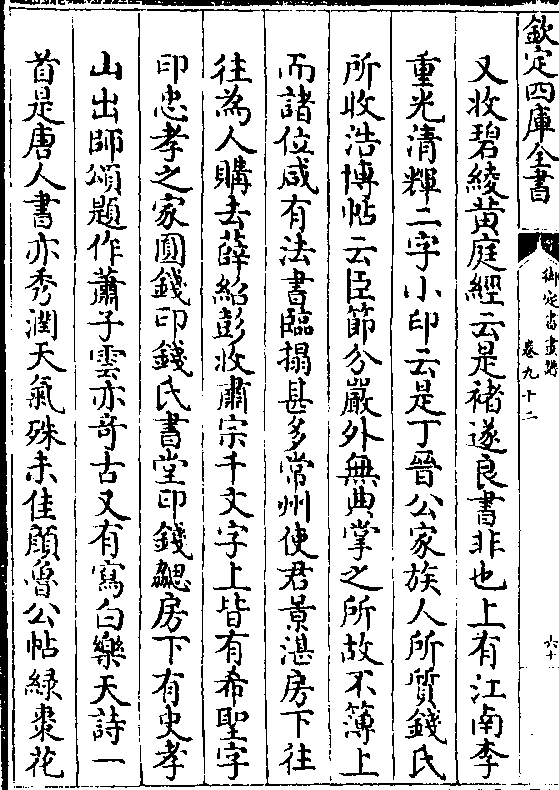 欽定四庫全書
御定書畫譜
卷九十二
六十
又收碧綾黄庭經云是褚遂良書非也上有江南李
重光清輝二字小印云是丁晉公家族人所質錢氏
所收浩博帖云臣節分嚴外無典掌之所故不簿上
而諸位咸有法書臨搨甚多常州使君景湛房下往
往為人購去薛紹彭收肅宗千文字上皆有希聖字
印忠孝之家圓錢印錢氏書堂印錢勰房下有史孝
山出師頌題作蕭子雲亦竒古又有寫白樂天詩一
首是唐人書亦秀潤天氣殊未佳顔魯公帖緑棗花